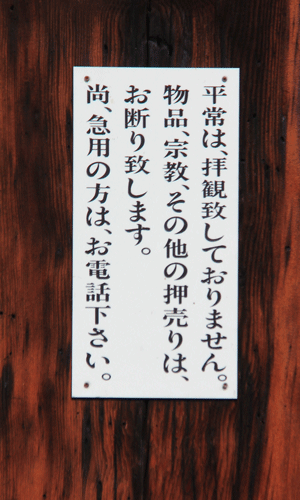 平常は、拝観致しておりません。
物品、宗教、その他の押売りは、
お断り致します。
尚、急用の方は、お電話下さい。